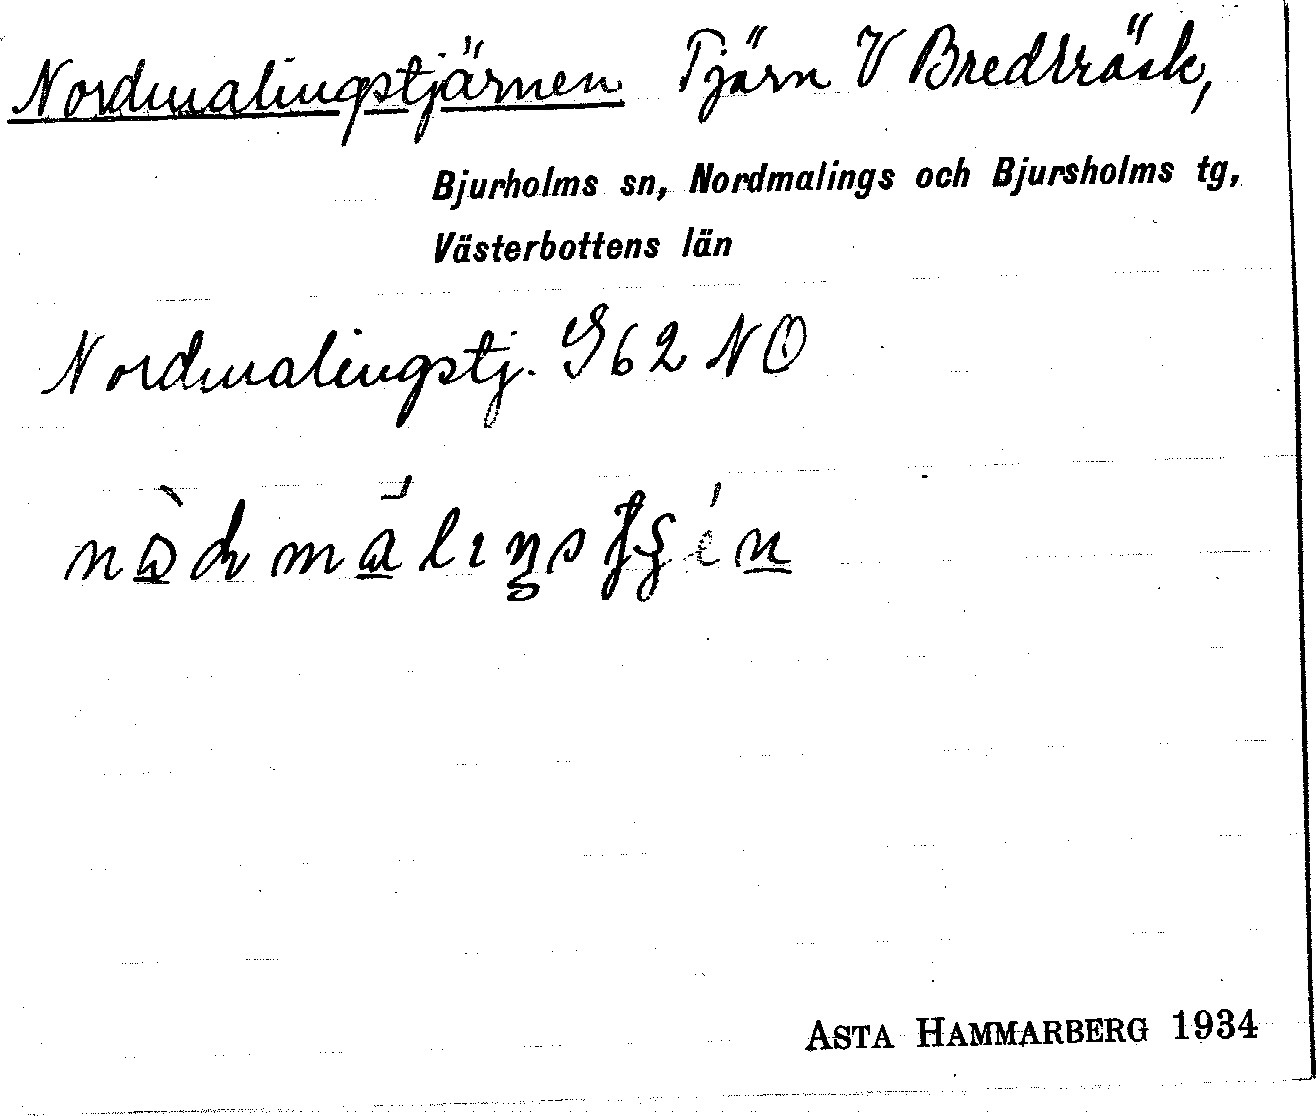 Nordmalingstjärnen Tjärn V Bredträsk,
Bjurholms sn, Nordmalings och Bjursholms tg,
Västerbottens län
Nordmalingstj. G62 NO
ASTA HAMMARBERG 1934